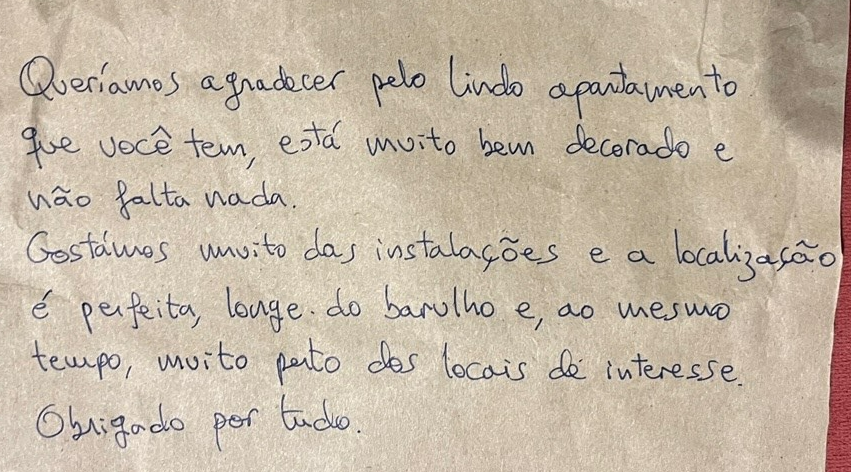 Queríamos agradecer pelo lindo apartamento
que você tem, está muito bem decorado e
não falta nada.
Gostámos muito das instalações e a localização
é perfeita, longe do barulho e, ao mesmo
tempo, muito perto dos locais de interesse.
Obrigado por tudo.